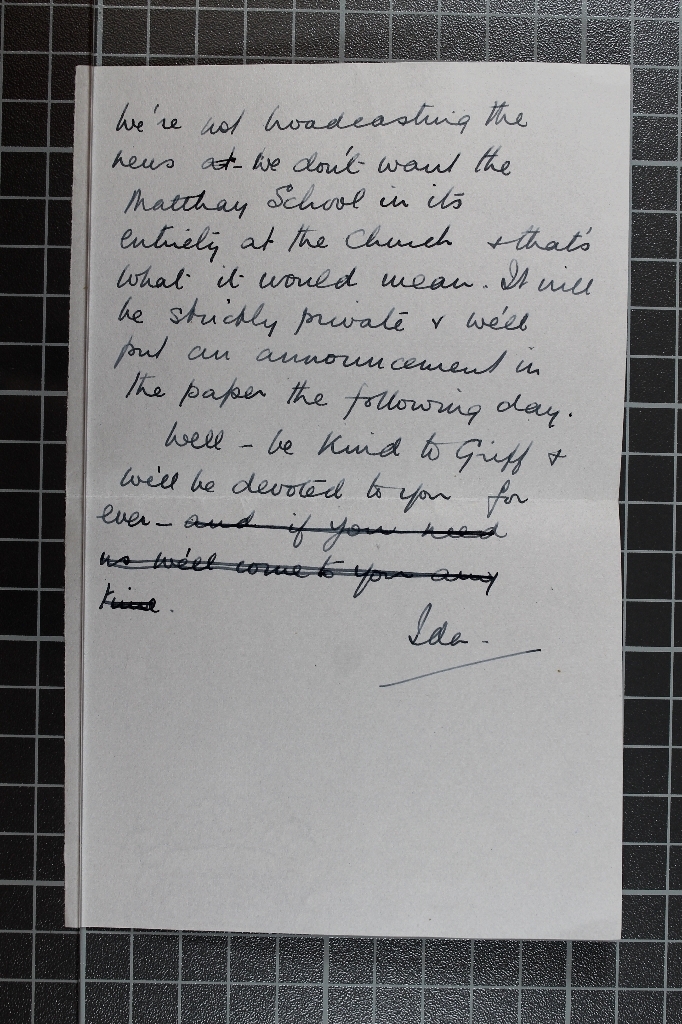 We're not broadcasting the
news at- we don't want the
Matthay School in its
entirety at the Church & that's
what it would mean. It will
be strictly private & we'll
put an announcement in
the paper the following day.
Well - be kind to Griff &
we'll be devoted to you for
ever - and if you need
us we'll come to you any
time.
Ida -